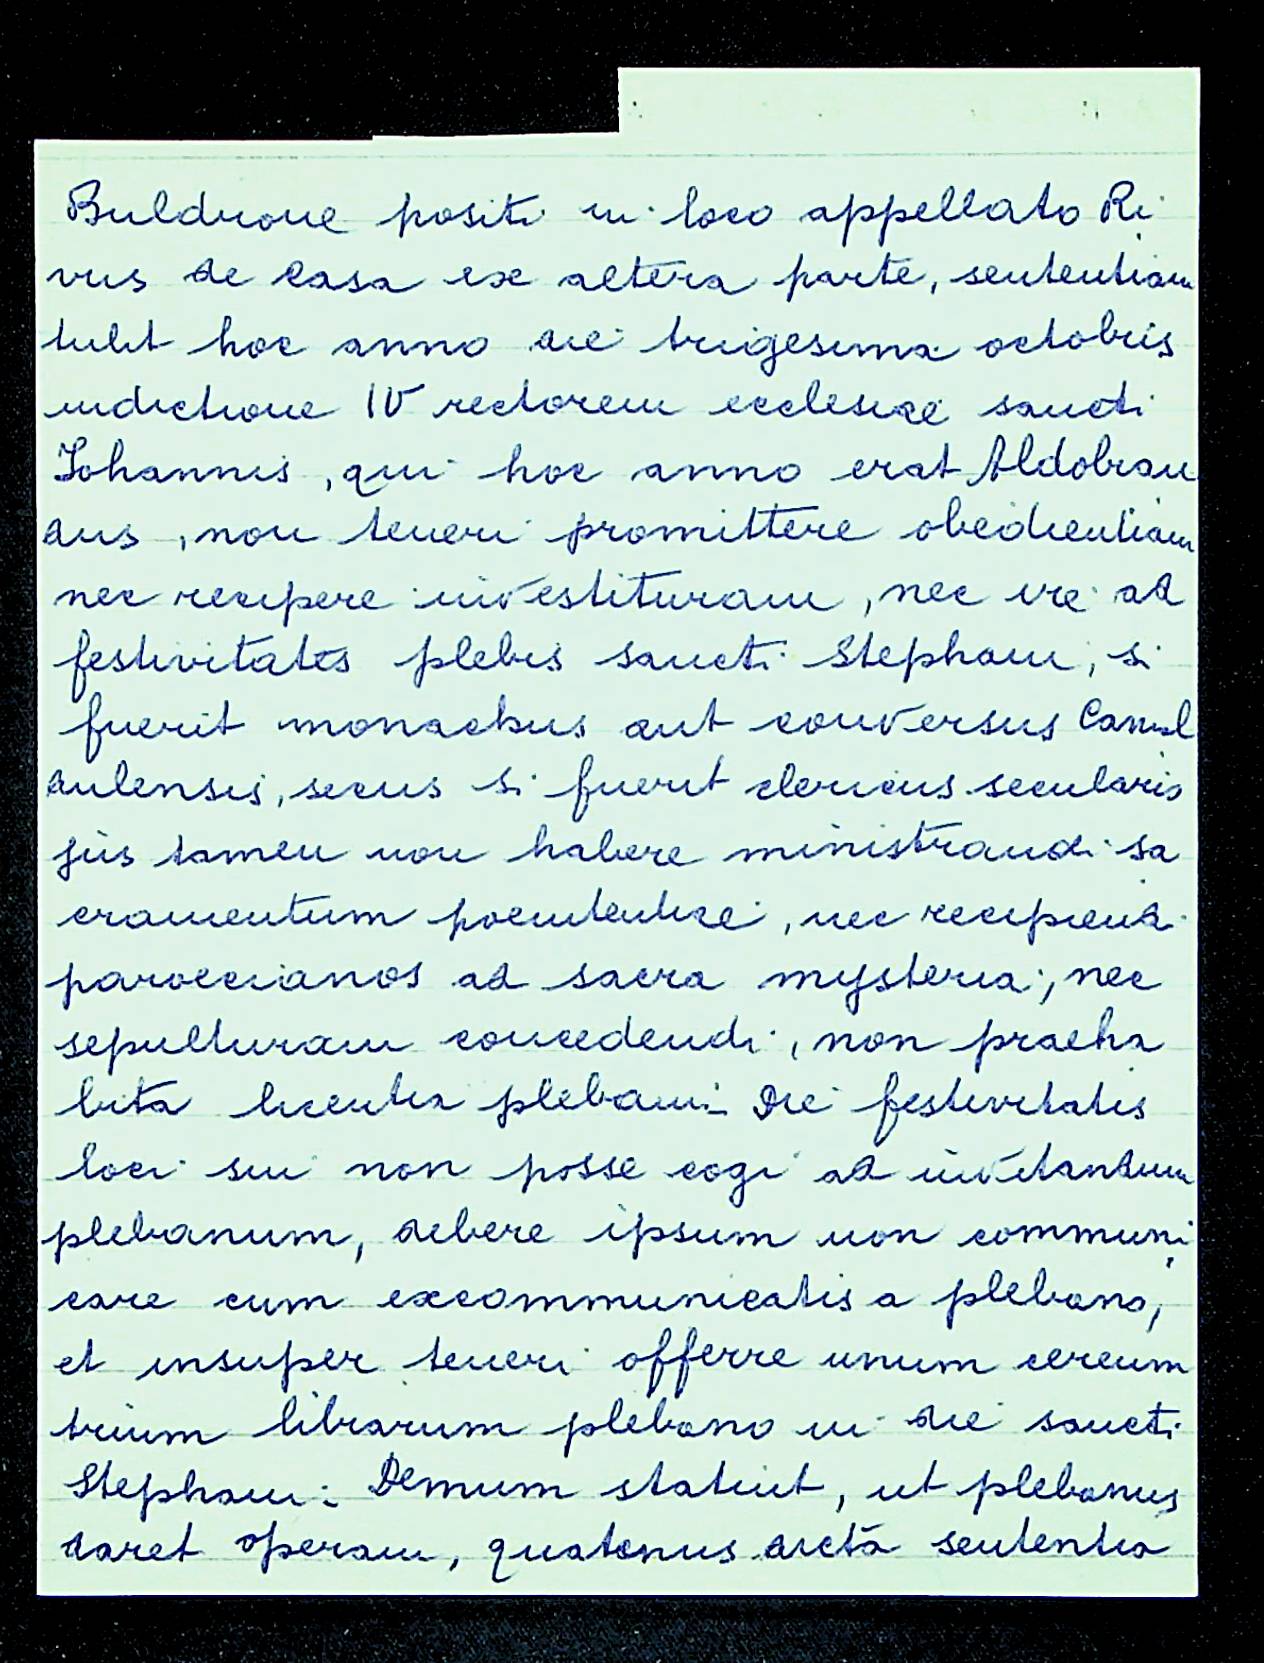 Buldrone positi in loco appellato Ri
vus de Casa ex altera parte, sententiam
tulit hoc anno die trigesima octobris
indictione IV rectorem ecclesiae sancti
Iohannis, qui hoc anno erat Aldobran
dus, non teneri promittere obedientiam
nec recipere investituram, nec ire ad
festivitates plebis sancti Stephani, si
fuerit monachus aut conversus Camal
dulensis, secus si fuerit clericus secularis
jus tamen non habere ministrandi sa
cramentum poenitentiae, nec recipiendi
paroccianos ad sacra mysteria, nec
sepulturam concedendi, non praeha
bita licentia plebani. Die festivitatis
loci sui non posse cogi ad invitandum
plebanum, debere ipsum non communi
care cum excommunicatis a plebano,
et insuper teneri offerre unum cereum
trium librarum plebano in die sancti
Stephani. Demum statuit, ut plebanus
daret operam, quatenus dicta sententia